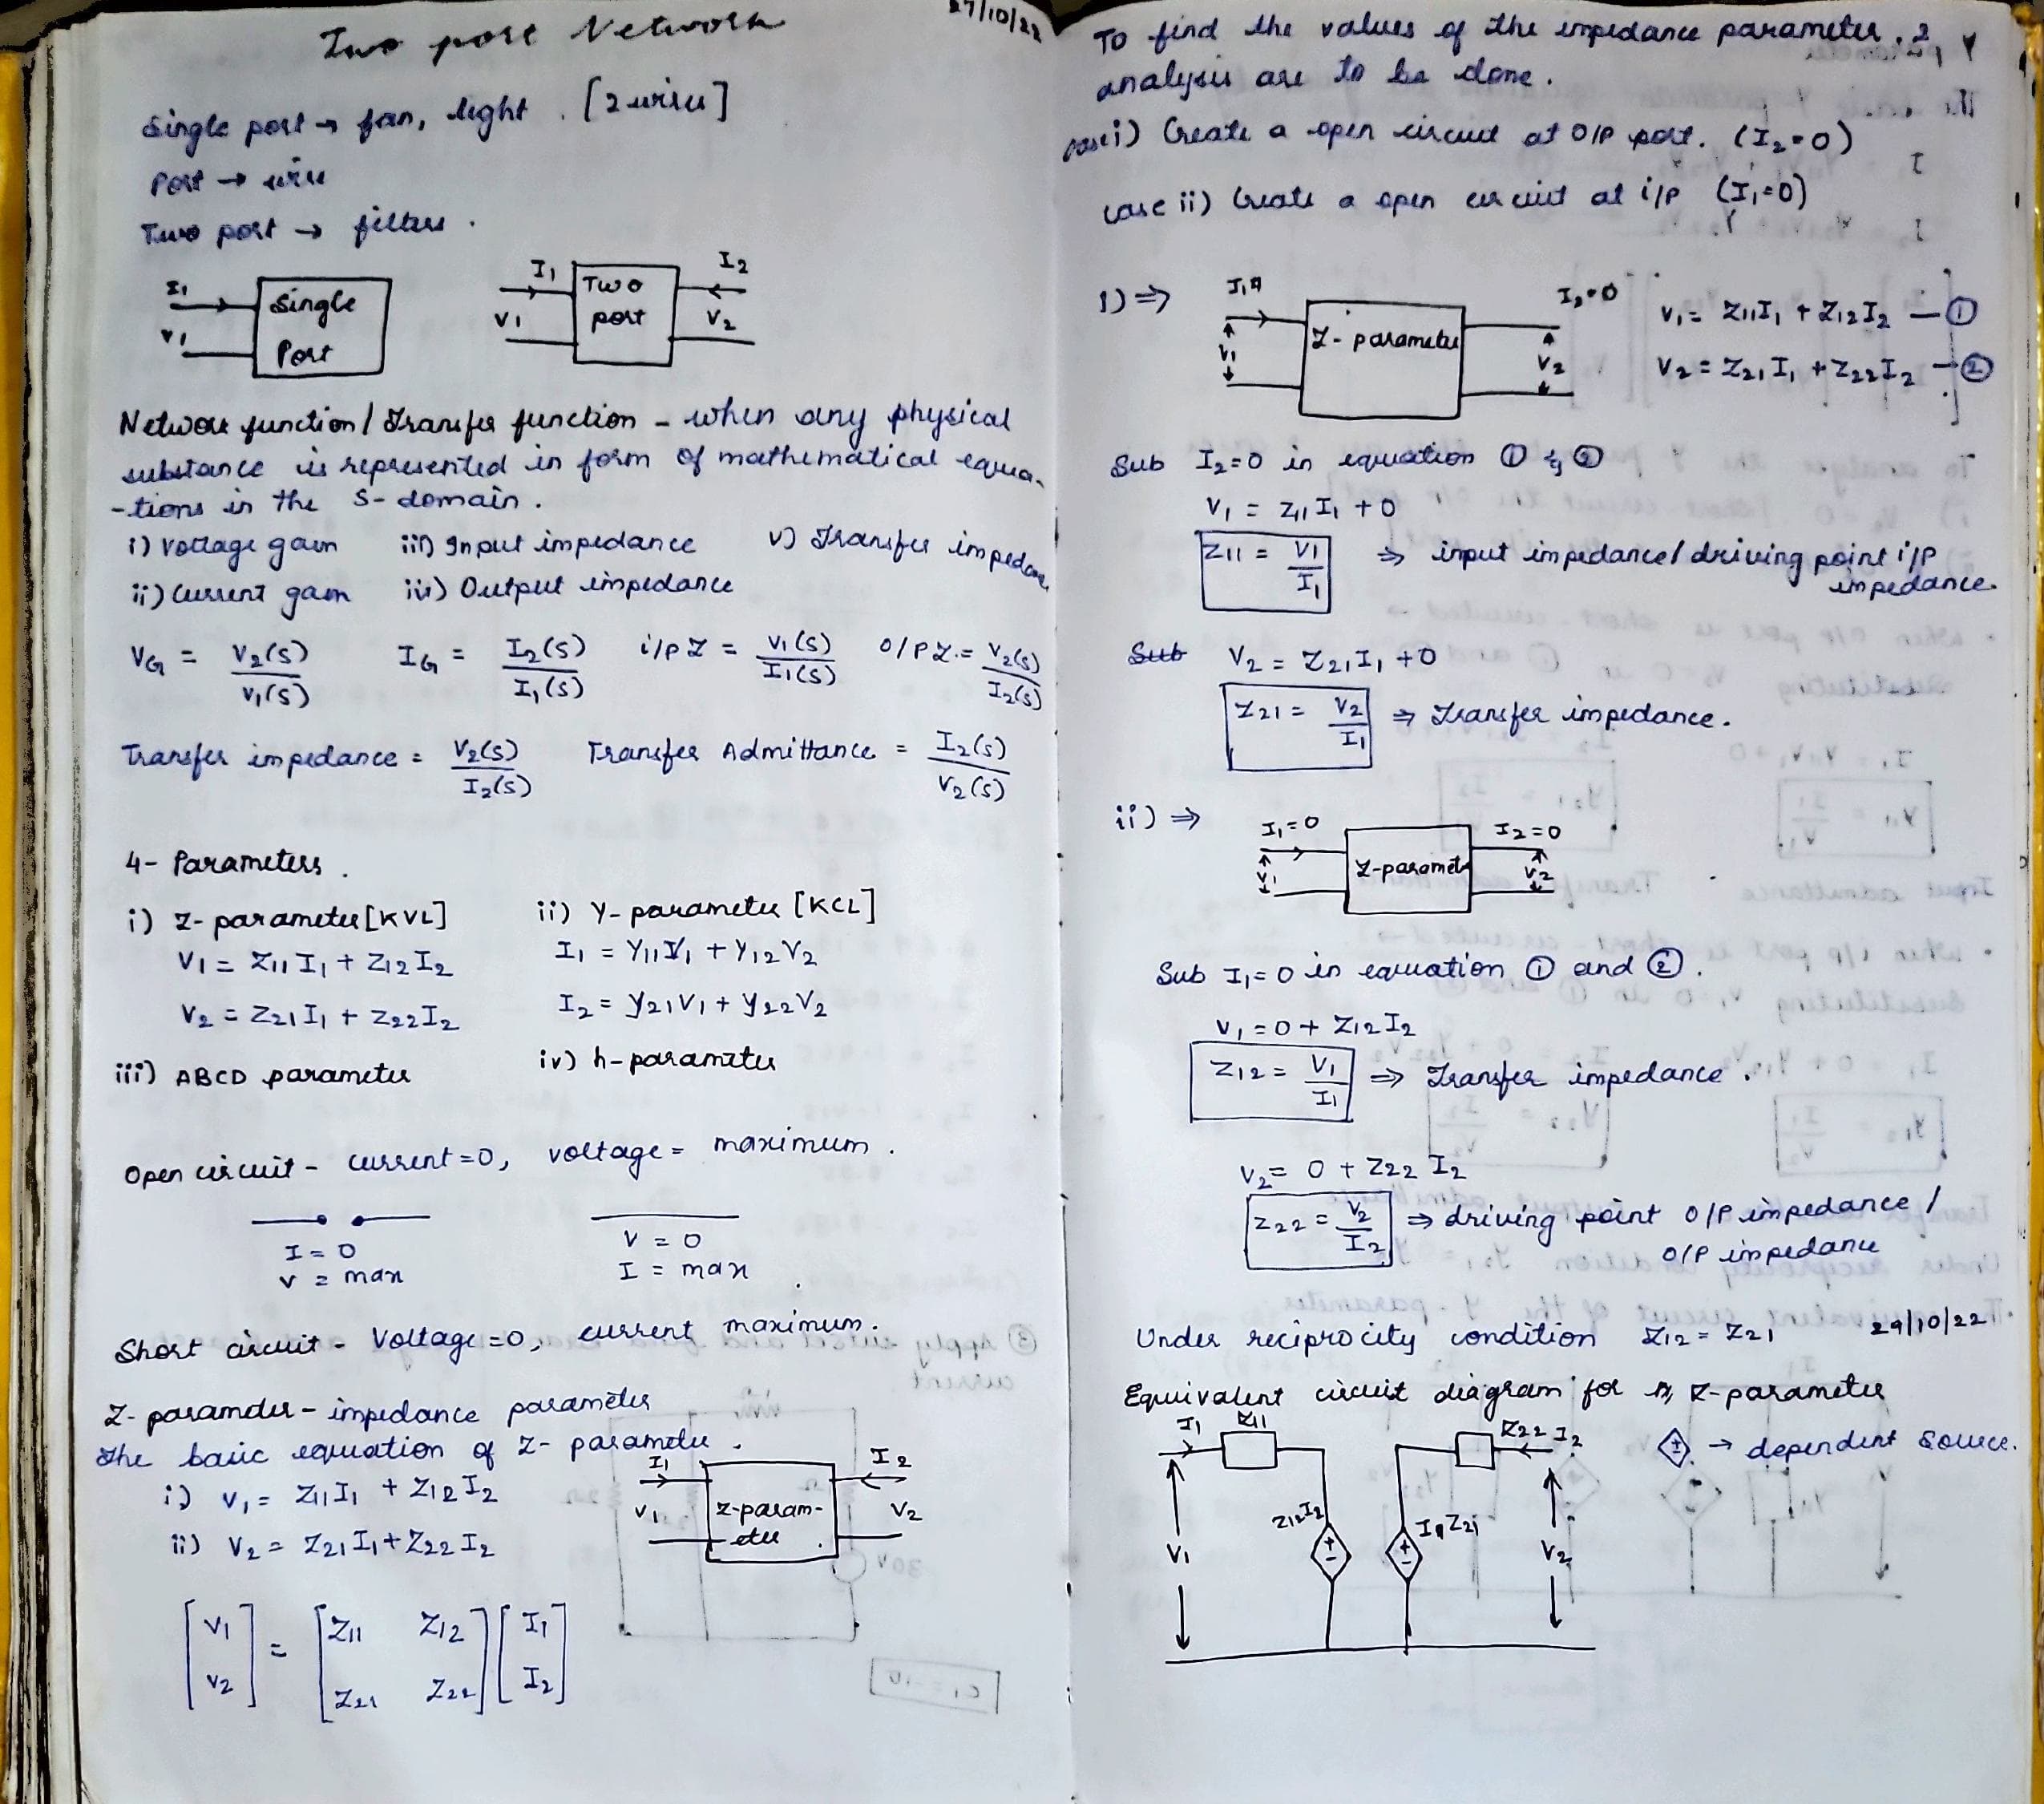 Two port Network
27/10/22
Single port → fan, light . [2 wire]
Port → wire
Two port → filters .
I1
V1
Single
Port
I1
V1
Two
port
I2
V2
Network function / Transfer function - when any physical
substance is represented in form of mathematical equa-
-tions in the S-domain .
i) Voltage gain iii) Input impedance v) Transfer impedance
ii) Current gain iv) Output impedance
VG = V2(S)/V1(S) IG = I2(S)/I1(S) i/p Z = V1(S)/I1(S) o/p Z = V2(S)/I2(S)
Transfer impedance = V2(S)/I2(S) Transfer Admittance = I2(S)/V2(S)
4- Parameters .
i) Z- parameter [KVL] ii) Y- parameter [KCL]
V1 = Z11 I1 + Z12 I2 I1 = Y11 V1 + Y12 V2
V2 = Z21 I1 + Z22 I2 I2 = Y21 V1 + Y22 V2
iii) ABCD parameter iv) h-parameter
Open circuit - current =0, voltage = maximum .
I = 0 V = 0
V = max I = max .
Short circuit - Voltage =0, current maximum.
Z- paramder - impedance parameter
The basic equation of Z- parameter .
i) V1 = Z11 I1 + Z12 I2
ii) V2 = Z21 I1 + Z22 I2
I1
V1
Z-param-
-eter
I2
V2
[V1 V2] = [Z11 Z12 Z21 Z22] [I1 I2]
To find the values of the impedance parameter, 2
analysis are to be done .
case i) Create a open circuit at O/P port. (I2=0)
case ii) Create a open circuit at i/p (I1=0)
1) ⇒
I1
V1
Z- parameter
I2=0
V2
V1 = Z11 I1 + Z12 I2 — ①
V2 = Z21 I1 + Z22 I2 — ②
Sub I2=0 in equation ① & ②
V1 = Z11 I1 + 0
Z11 = V1/I1 ⇒ input impedance / driving point i/p
impedance.
Sub V2 = Z21 I1 + 0
Z21 = V2/I1 ⇒ Transfer impedance .
ii) ⇒
I1=0
V1
Z-paramet
I2=0
V2
Sub I1=0 in equation ① and ② .
V1 = 0 + Z12 I2
Z12 = V1/I1 ⇒ Transfer impedance .
V2 = 0 + Z22 I2
Z22 = V2/I2 ⇒ driving point O/P impedance /
O/P impedance
Under reciprocity condition Z12 = Z21
29/10/22
Equivalent circuit diagram for Z-parameter
I1 Z11
Z22 I2
→ dependent source.
V1
Z12 I2
I1 Z21
V2